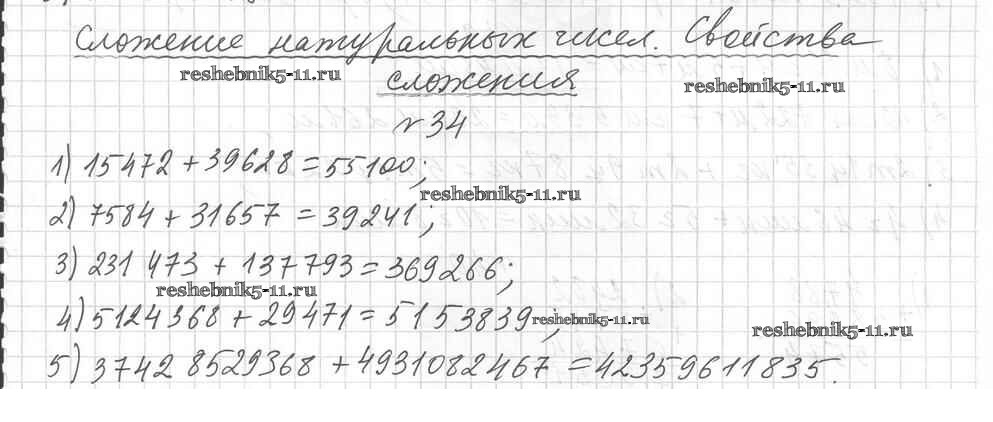 Сложение натуральных чисел. Свойства
reshebnik5-11.ru
сложения
reshebnik5-11.ru
№34
1) 15472 + 39628 = 55100;
reshebnik5-11.ru
2) 7584 + 31657 = 39241;
3) 231 473 + 137793 = 369266;
reshebnik5-11.ru
4) 5124368 + 29471 = 5153839;
reshebnik5-11.ru
reshebnik5-11.ru
5) 3742 8529368 + 4931082467 = 42359611835.